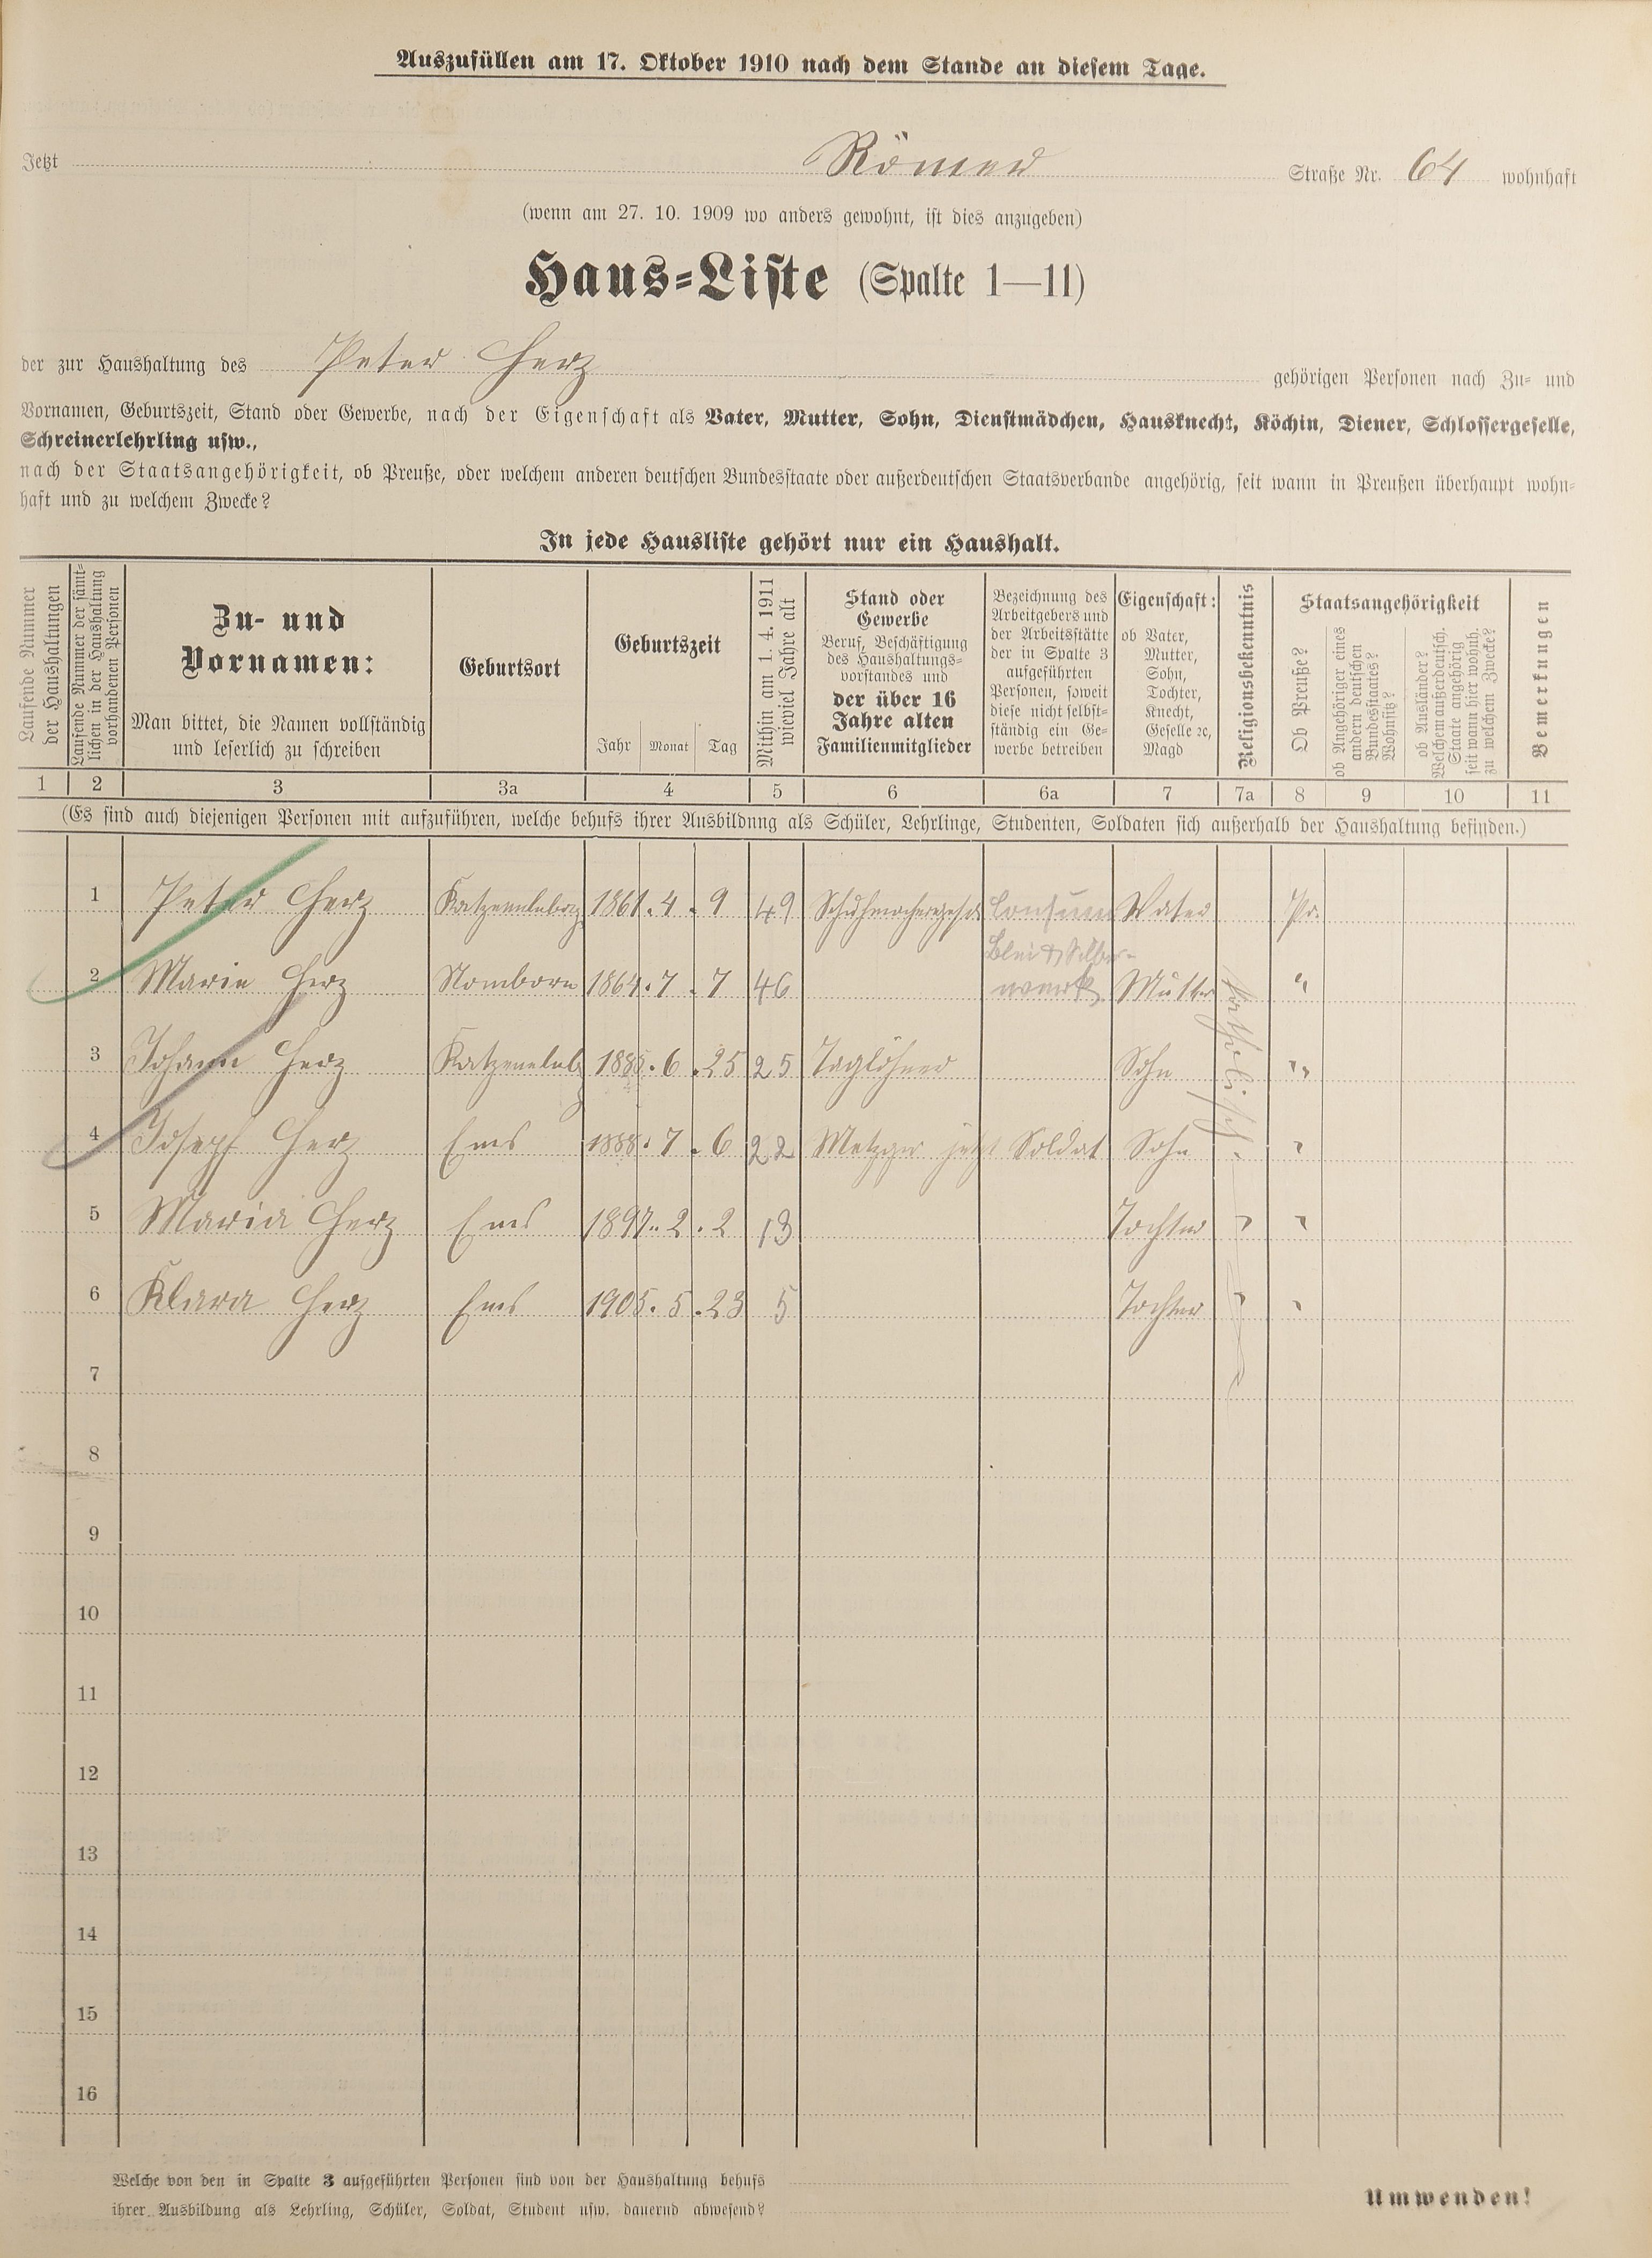 Auszufüllen am 17. Oktober 1910 nach dem Stande an diesem Tage.
Jetzt Römer Straße Nr. 64 wohnhaft
(wenn am 27. 10. 1909 wo anders gewohnt, ist dies anzugeben)
Haus-Liste (Spalte 1—11)
der zur Haushaltung des Peter Herz gehörigen Personen nach Zu- und
Vornamen, Geburtszeit, Stand oder Gewerbe, nach der Eigenschaft als Vater, Mutter, Sohn, Dienstmädchen, Hausknecht, Köchin, Diener, Schlossergeselle,
Schreinerlehrling usw.,
nach der Staatsangehörigkeit, ob Preuße, oder welchem anderen deutschen Bundesstaate oder außerdeutschen Staatsverbande angehörig, seit wann in Preußen überhaupt wohn-
haft und zu welchem Zwecke?
In jede Hausliste gehört nur ein Haushalt.
Laufende Nummer
der Haushaltungen
Laufende Nummer der sämt-
lichen in der Haushaltung
vorhandenen Personen
Zu- und
Vornamen:
Man bittet, die Namen vollständig
und leserlich zu schreiben
Geburtsort
Geburtszeit
Jahr Monat Tag
Mithin am 1. 4. 1911
wieviel Jahre alt
Stand oder
Gewerbe
Beruf, Beschäftigung
des Haushaltungs-
vorstandes und
der über 16
Jahre alten
Familienmitglieder
Bezeichnung des
Arbeitgebers und
der Arbeitsstätte
der in Spalte 3
aufgeführten
Personen, soweit
diese nicht selbst-
ständig ein Ge-
werbe betreiben
Eigenschaft:
ob Vater,
Mutter,
Sohn,
Tochter,
Knecht,
Geselle ꝛc,
Magd
Religionsbekenntnis
Staatsangehörigkeit
Ob Preuße?
ob Angehöriger eines
andern deutschen
Bundesstaates?
Wohnsitz?
ob Ausländer?
Welchem außerdeutsch.
Staate angehörig
seit wann hier wohnh.
zu welchem Zwecke?
Bemerkungen
1 2 3 3a 4 5 6 6a 7 7a 8 9 10 11
(Es sind auch diejenigen Personen mit aufzuführen, welche behufs ihrer Ausbildung als Schüler, Lehrlinge, Studenten, Soldaten sich außerhalb der Haushaltung befinden.)
1 Peter Herz Katzenelnbog 1861. 4. 9 49 Consum Vater Pr.
Blei & Silber-
2 Marie Herz Nomborn 1864. 7. 7 46 werk Mutter "
3 Johann Herz Katzenelnb 1885. 6. 25 25 Taglöhner Sohn katholisch "
4 Joseph Herz Ems 1888. 7. 6 22 Metzger jetzt Soldat Sohn "
5 Maria Herz Ems 1897. 2. 2 13 Tochter " "
6 Klara Herz Ems 1905. 5. 23 5 Tochter " "
7
8
9
10
11
12
13
14
15
16
Welche von den in Spalte 3 aufgeführten Personen sind von der Haushaltung behufs
ihrer Ausbildung als Lehrling, Schüler, Soldat, Student usw. dauernd abwesend?
Umwenden!